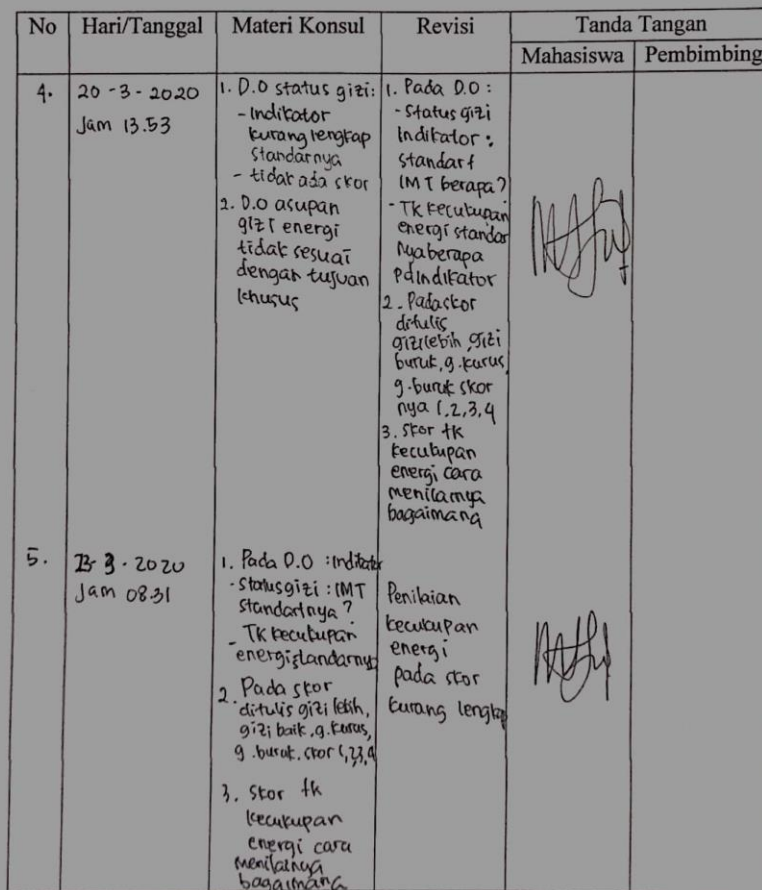 No Hari/Tanggal Materi Konsul Revisi Tanda Tangan
Mahasiswa Pembimbing
4.
20-3-2020
Jam 13.53
1. D.O status gizi:
- Indikator
kurang lengkap
standarnya
- tidak ada skor
2. D.O asupan
gizi energi
tidak sesuai
dengan tujuan
khusus
1. Pada D.O :
- Status gizi
Indikator :
standart
IMT berapa?
- TK kecukupan
energi standar
nya berapa
pd indikator
2. Pada skor
ditulis
gizi lebih, gizi
buruk, g. kurus,
g. buruk skor
nya 1,2,3,4
3. Skor tk
kecukupan
energi cara
menilainya
bagaimana
5.
23-3-2020
Jam 08.31
1. Pada D.O : Indikator
- Status gizi : IMT
standartnya ?
- TK kecukupan
energi standarnya
2. Pada skor
ditulis gizi lebih,
gizi baik, g. kurus,
g. buruk. skor 1,2,3,4
3. Skor tk
kecukupan
energi cara
menilainya
bagaimana
Penilaian
kecukupan
energi
pada skor
kurang lengkap